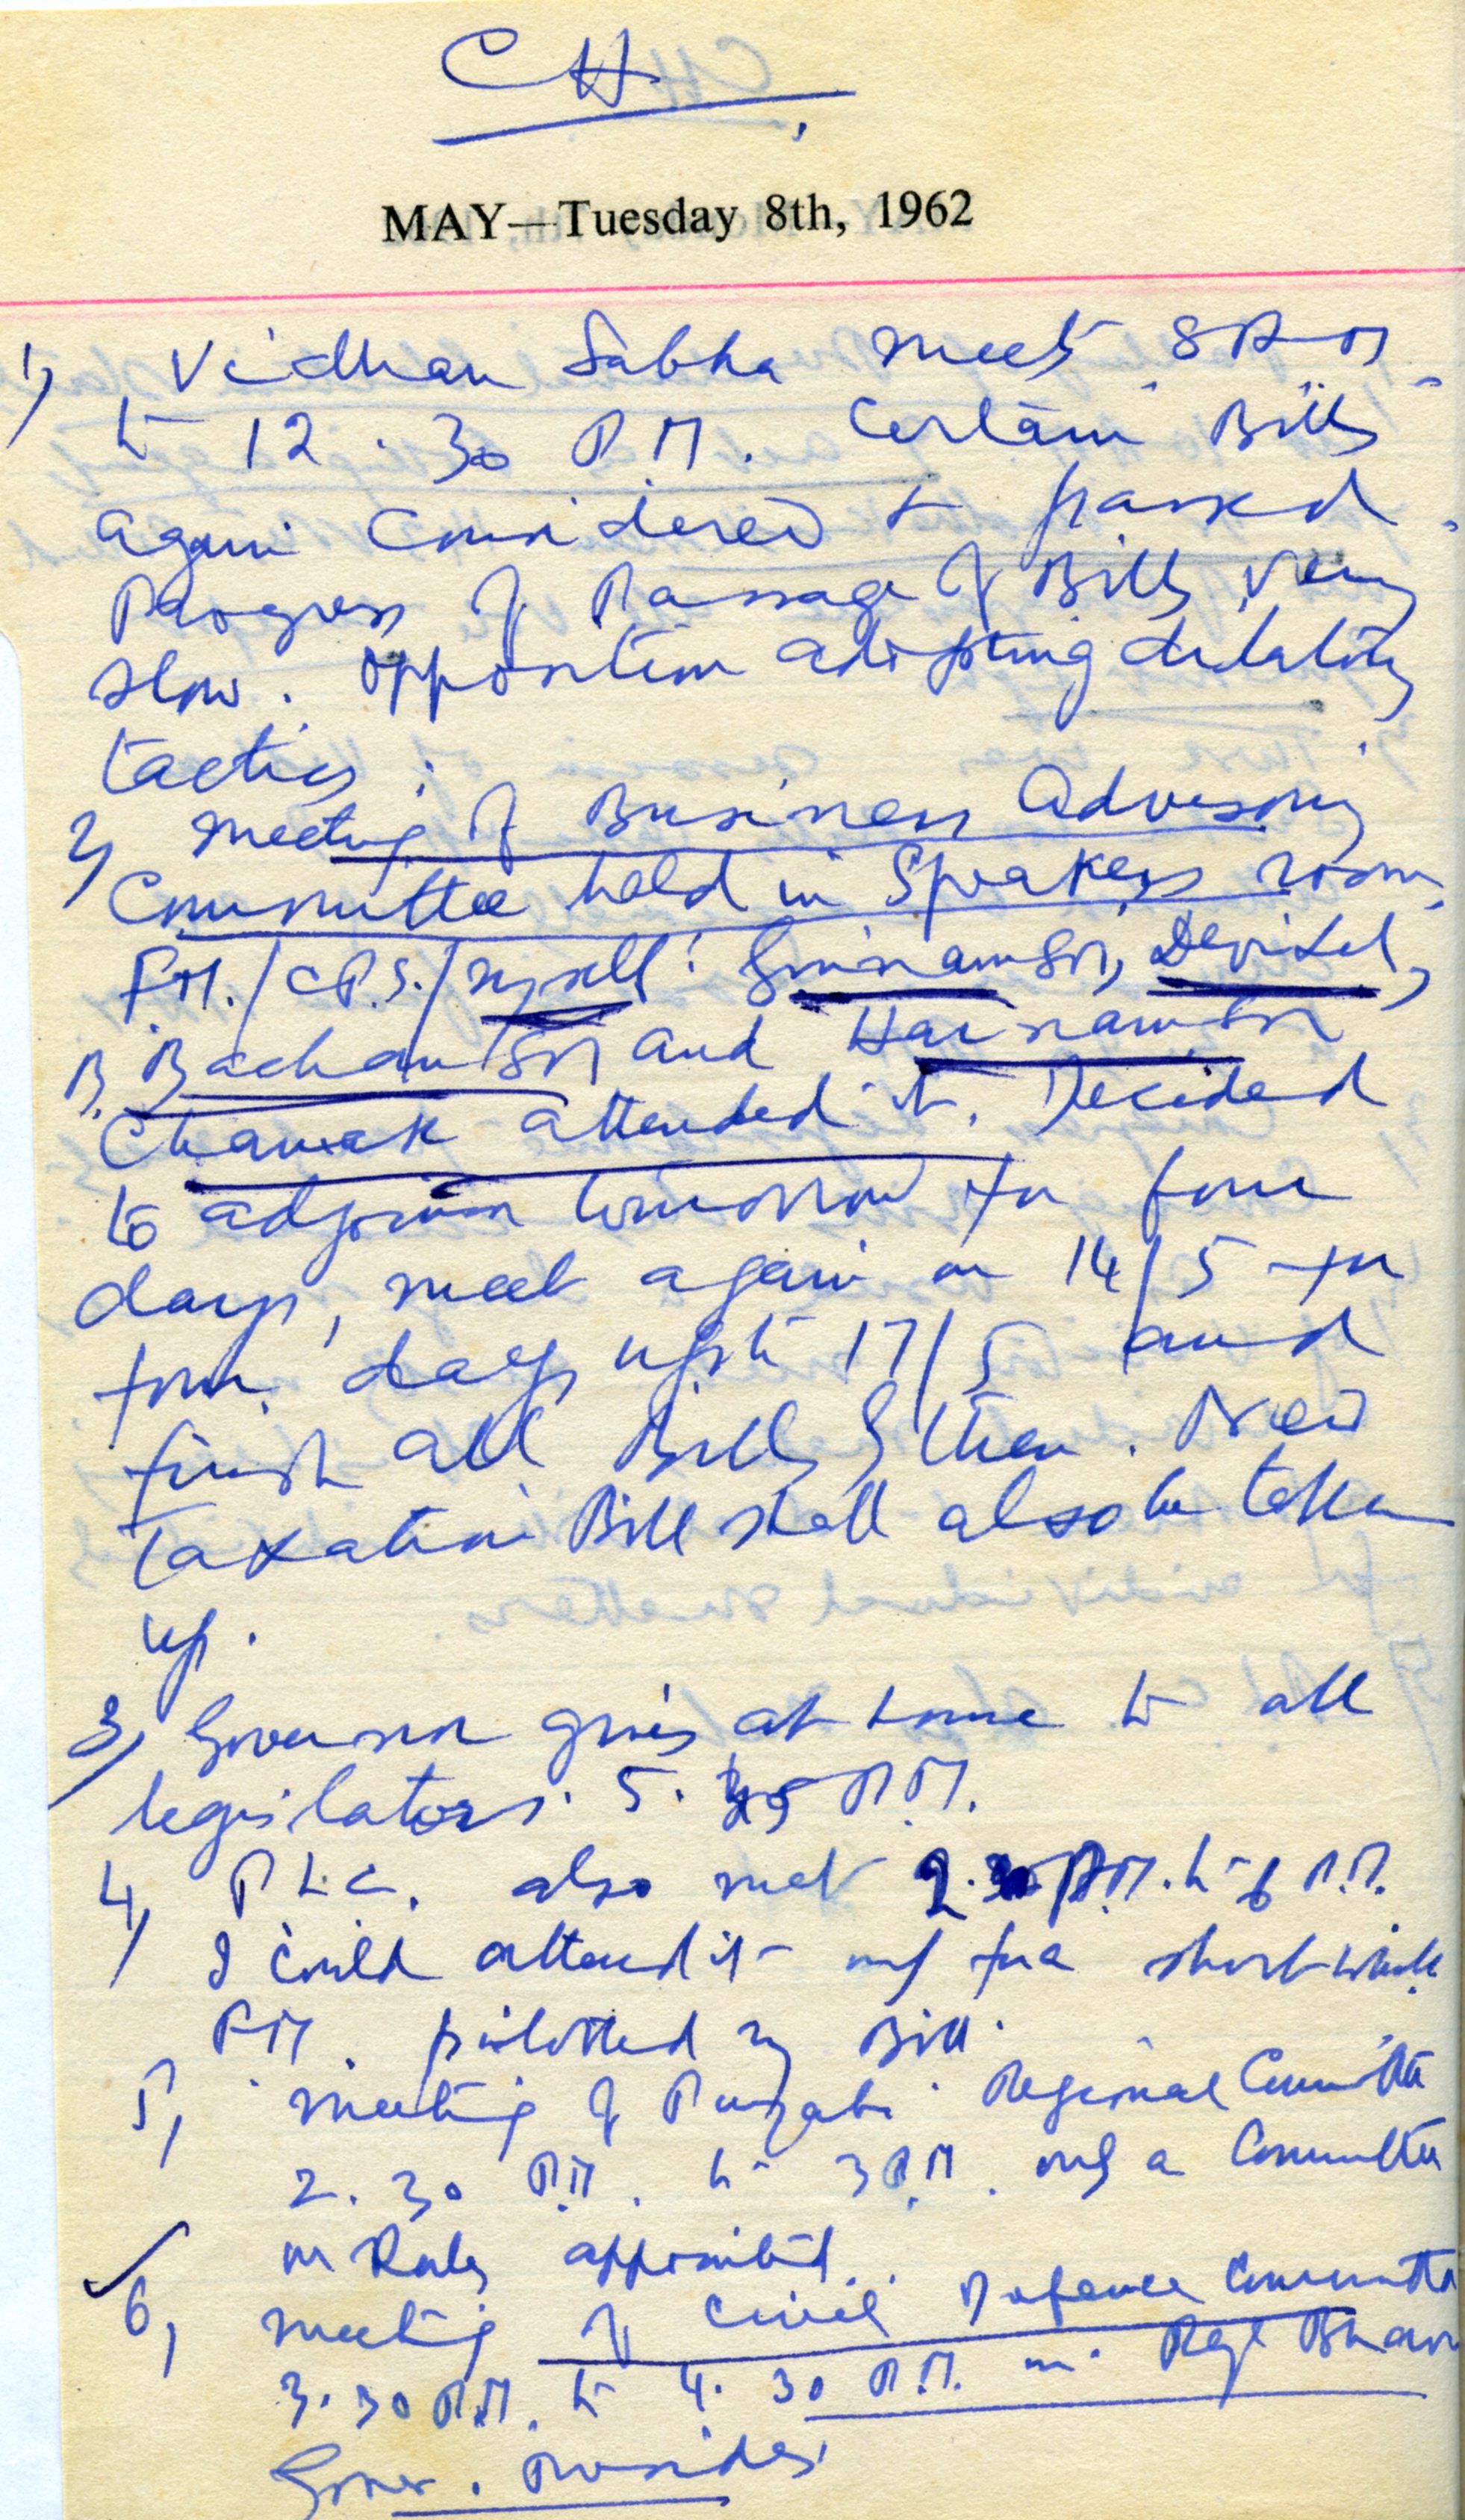 CH.
MAY—Tuesday 8th, 1962
1) Vidhan Sabha meets 8 A.M.
to 12.30 P.M. Certain Bills
again considered & passed.
Progress of Passage of Bills very
slow. Opposition adopting dilatory
tactics.
2) Meeting of Business Advisory
Committee held in Speakers room.
F.M./C.P.S./myself. Gurnam Sn, Devi Lal,
B. Bachan Sn and Harnam Sn
Chamak attended it. Decided
to adjourn tomorrow for four
days, meet again on 14/5 for
four days upto 17/5 and
finish all Bills then. New
Taxation Bill shall also be taken
up.
3) Governor gives at home to all
legislators. 5.45 P.M.
4) P.L.C. also met 2.30 P.M. to 6 P.M.
I could attend it only for a short while
F.M. piloted my Bill.
5) Meeting of Punjabi Regional Committee
2.30 P.M. to 3 P.M. only a Committee
on Rules appointed.
6) Meeting of Civil Defence Committee
3.30 P.M. to 4.30 P.M. in Raj Bhawan
Gover. Presides